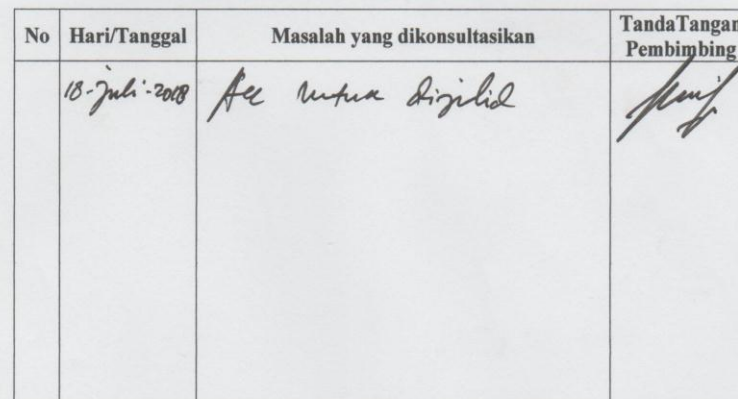 No Hari/Tanggal Masalah yang dikonsultasikan TandaTangan Pembimbing
18-Juli-2018 Acc untuk dijilid